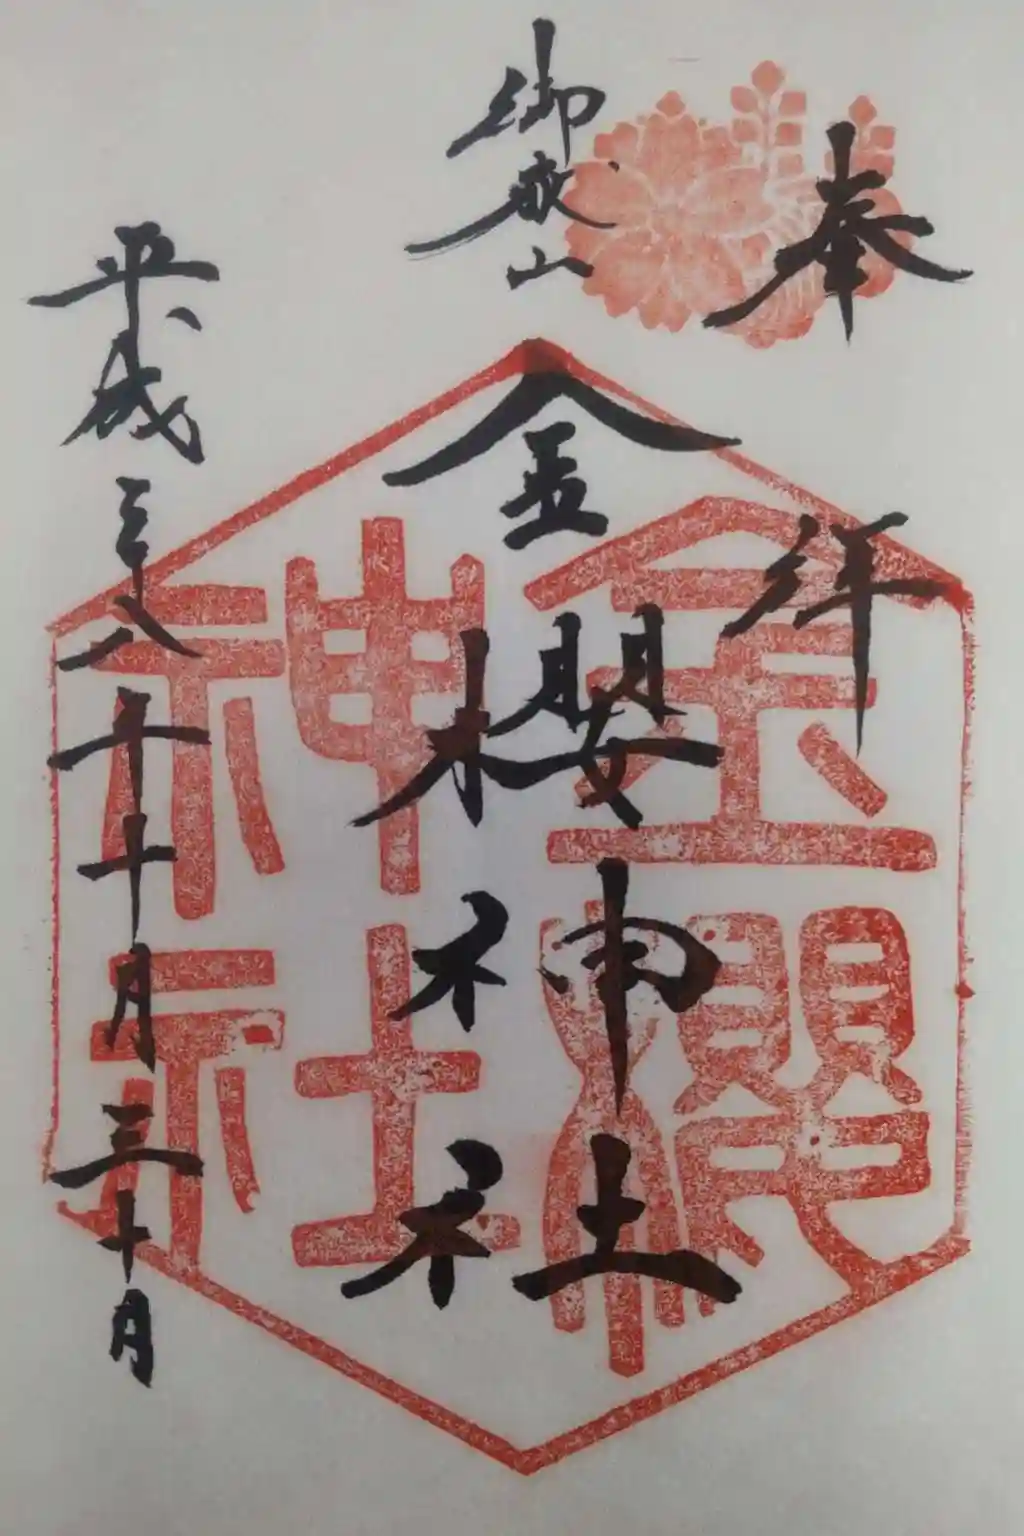 奉拝
御嶽山
金櫻神社
平成二十八年十月三十日
金櫻神社